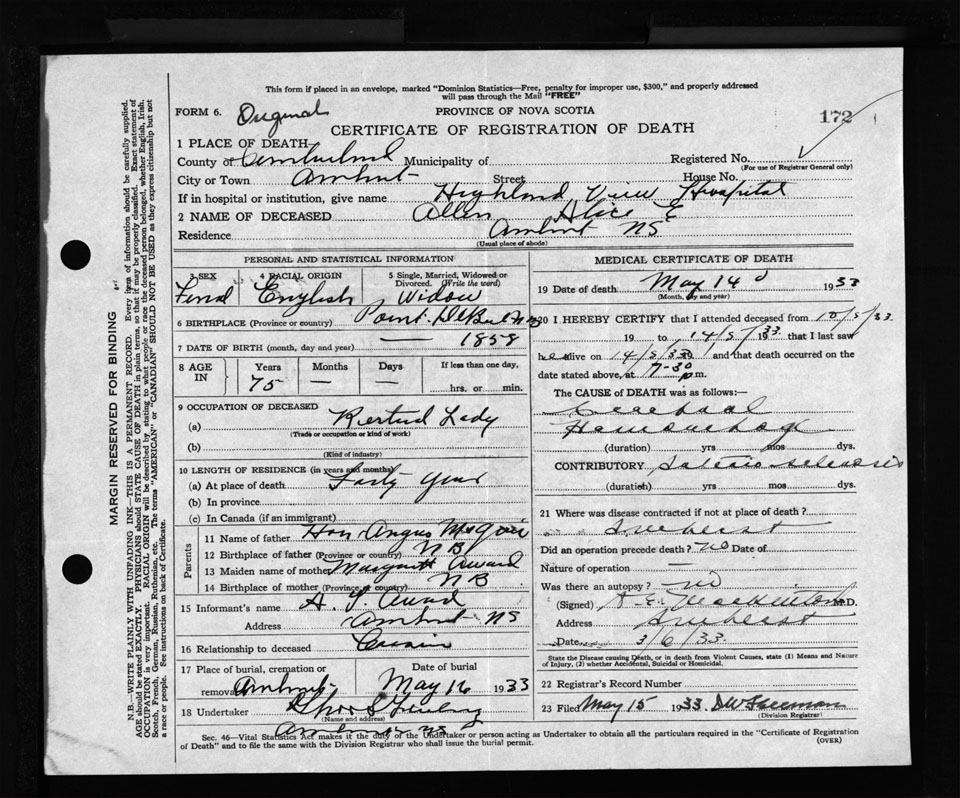 This form if placed in an envelope, marked "Dominion Statistics—Free, penalty for improper use, $300," and properly addressed
will pass through the Mail "FREE"
FORM 6. Original PROVINCE OF NOVA SCOTIA 172
CERTIFICATE OF REGISTRATION OF DEATH
1 PLACE OF DEATH
County of Cumberland Municipality of Registered No.
(For use of Registrar General only)
City or Town Amherst Street House No.
If in hospital or institution, give name Highland View Hospital
2 NAME OF DECEASED Allen Alice E
Residence Amherst NS
(Usual place of abode)
PERSONAL AND STATISTICAL INFORMATION
3 SEX 4 RACIAL ORIGIN 5 Single, Married, Widowed or
Divorced. (Write the word)
English Widow
6 BIRTHPLACE (Province or country) Point De Bute
7 DATE OF BIRTH (month, day and year) — 1858
8 AGE IN Years Months Days If less than one day,
75 — — hrs. or min.
9 OCCUPATION OF DECEASED
(a) Retired Lady
(Trade or occupation or kind of work)
(b)
(Kind of industry)
10 LENGTH OF RESIDENCE (in years and months)
(a) At place of death Forty years
(b) In province
(c) In Canada (if an immigrant)
Parents
11 Name of father Hon Angus
12 Birthplace of father (Province or country) NB
13 Maiden name of mother Margaret
14 Birthplace of mother (Province or country) NB
15 Informant's name A.
Address Amherst NS
16 Relationship to deceased Cousin
17 Place of burial, cremation or Date of burial
removal Amherst May 16 1933
18 Undertaker
(Name and address)
MEDICAL CERTIFICATE OF DEATH
19 Date of death May 14 1933
(Month, day and year)
20 I HEREBY CERTIFY that I attended deceased from 10/5/33.
19 to 14/5/ 1933. that I last saw
her alive on 14/5/33 and that death occurred on the
date stated above, at 7-30 p.m.
The CAUSE OF DEATH was as follows:
Cerebral
Haemorrhage
(duration) yrs mos dys.
CONTRIBUTORY
(duration) yrs. mos. dys.
21 Where was disease contracted if not at place of death?
Amherst
Did an operation precede death? no Date of
Nature of operation —
Was there an autopsy? no
(Signed) M.D.
Address Amherst
Date 3/6/33.
State the Disease causing Death, or in death from Violent Causes, state (1) Means and Nature
of Injury, (2) whether Accidental, Suicidal or Homicidal.
22 Registrar's Record Number
23 Filed May 15 1933. DW Freeman
(Division Registrar)
Sec. 46—Vital Statistics Act makes it the duty of the Undertaker or person acting as Undertaker to obtain all the particulars required in the "Certificate of Registration
of Death" and to file the same with the Division Registrar who shall issue the burial permit. (OVER)
MARGIN RESERVED FOR BINDING
N.B.—WRITE PLAINLY WITH UNFADING INK—THIS IS A PERMANENT RECORD. Every item of information should be carefully supplied.
AGE should be stated EXACTLY. PHYSICIANS should STATE CAUSE OF DEATH in plain terms, so that it may be properly classified. Exact statement of
OCCUPATION is very important. RACIAL ORIGIN will be described by stating to what people or race the deceased person belonged, whether English, Irish,
Scotch, French, German, Russian, Ruthenian, etc. The terms "AMERICAN" or "CANADIAN" SHOULD NOT BE USED as they express citizenship but not
a race or people. See instructions on back of Certificate.